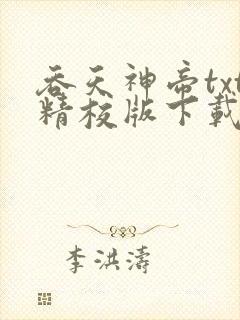 吞天神帝txt
精校版下载
李洪涛